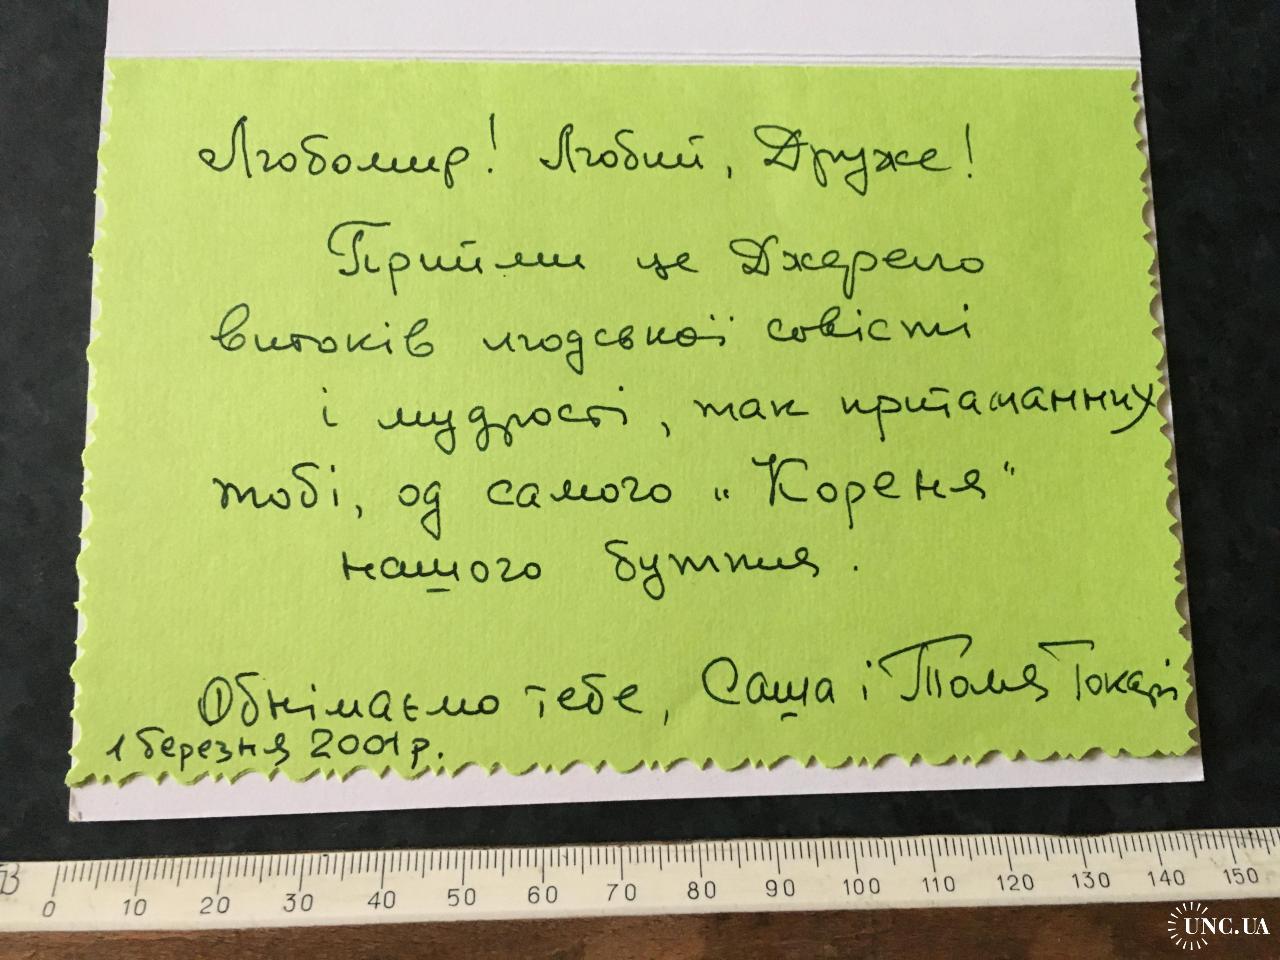 Любомир! Любий, Друже!
Прийми це Джерело
витоків людської совісті
і мудрості, так притаманних
тобі, од самого „Кореня"
нашого буття.
Обнімаємо тебе, Саша і Толя Токарі
1 березня 2001 р.
0 10 20 30 40 50 60 70 80 90 100 110 120 130 140 150
UNC.UA